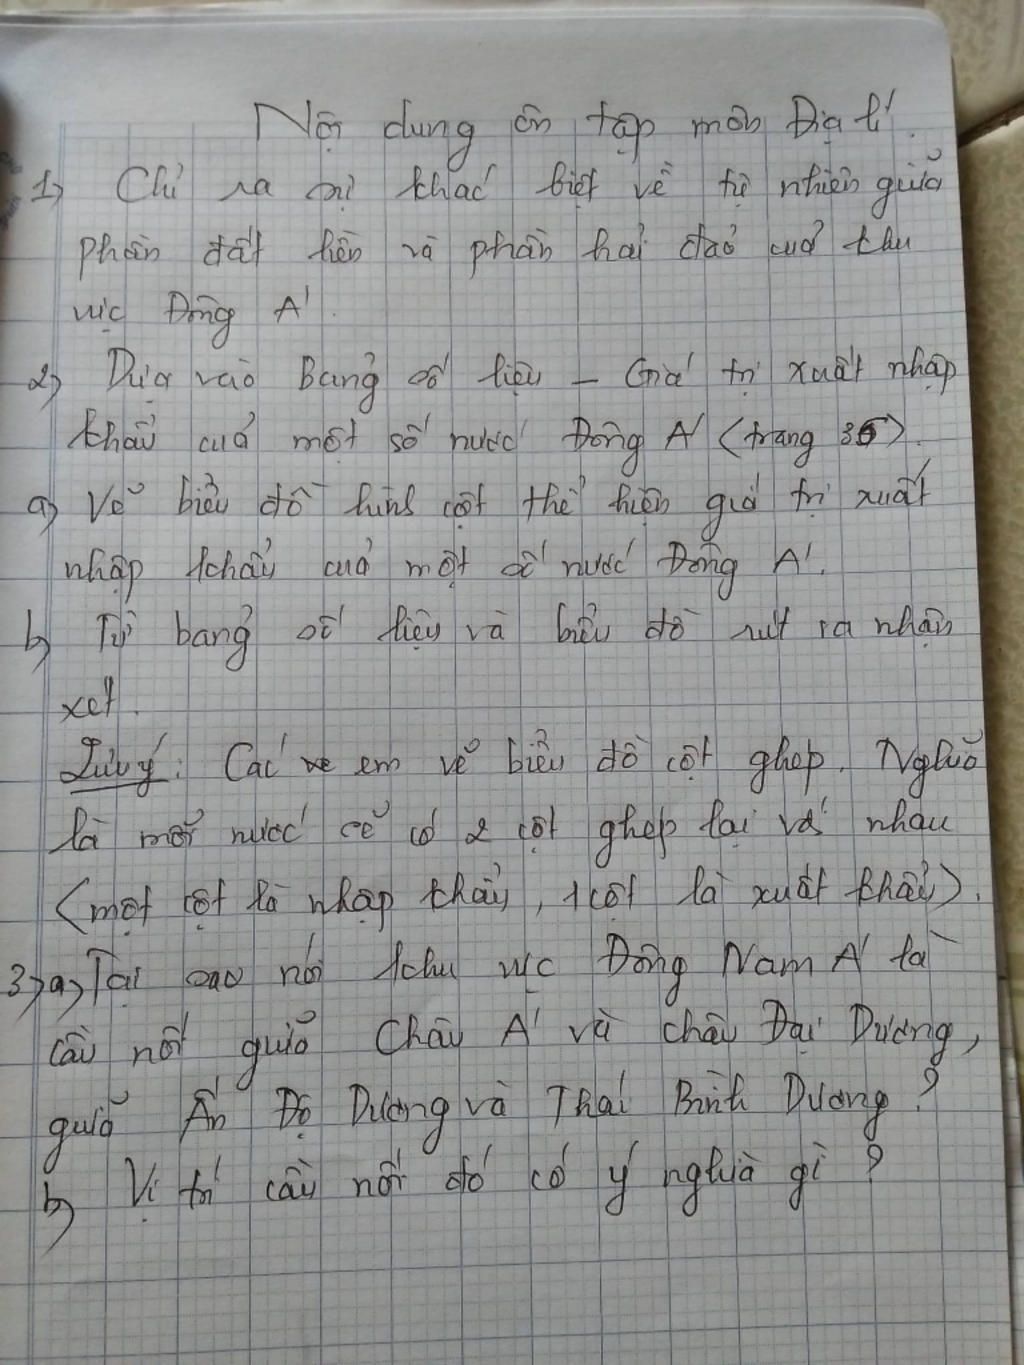 Nội dung ôn tập môn Địa lí.
1) Chỉ ra sự khác biệt về tự nhiên giữa
phần đất liền và phần hải đảo của khu
vực Đông Á.
2) Dựa vào Bảng số liệu - Giá trị xuất nhập
khẩu của một số nước Đông Á (trang 36).
a) Vẽ biểu đồ hình cột thể hiện giá trị xuất
nhập khẩu của một số nước Đông Á.
b) Từ bảng số liệu và biểu đồ rút ra nhận
xét.
Lưu ý: Các em vẽ biểu đồ cột ghép. Nghĩa
là mỗi nước sẽ có 2 cột ghép lại với nhau
(một cột là nhập khẩu, 1 cột là xuất khẩu).
3) a) Tại sao nói khu vực Đông Nam Á là
cầu nối giữa Châu Á và châu Đại Dương,
giữa Ấn Độ Dương và Thái Bình Dương?
b) Vị trí cầu nối đó có ý nghĩa gì?